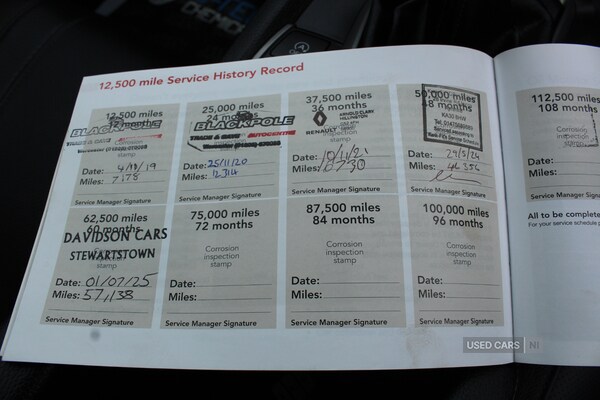 12,500 mile Service History Record
12,500 miles
12 months
BLACKPOLE
Corrosion
inspection
stamp
Date: 4/10/19
Miles: 7178
Service Manager Signature
25,000 miles
24 months
BLACKPOLE
TRADE & CARS AUTOCENTRE
stamp
Date: 25/11/20
Miles: 12314
Service Manager Signature
37,500 miles
36 months
RENAULT
ARNOLD CLARK
Date: 10/11/21
Miles:
Service Manager Signature
50,000 miles
48 months
Date: 29/5/24
Miles: 46 356
Service Manager Signature
62,500 miles
60 months
DAVIDSON CARS
STEWARTSTOWN
stamp
Date: 01/07/25
Miles: 57,138
Service Manager Signature
75,000 miles
72 months
Corrosion
inspection
stamp
Date:
Miles:
Service Manager Signature
87,500 miles
84 months
Corrosion
inspection
stamp
Date:
Miles:
Service Manager Signature
100,000 miles
96 months
Corrosion
inspection
stamp
Date:
Miles:
Service Manager Signature
112,500 miles
108 months
Date:
Miles:
Service Manager Signature
All to be complete
For your service schedule p
USED CARS NI